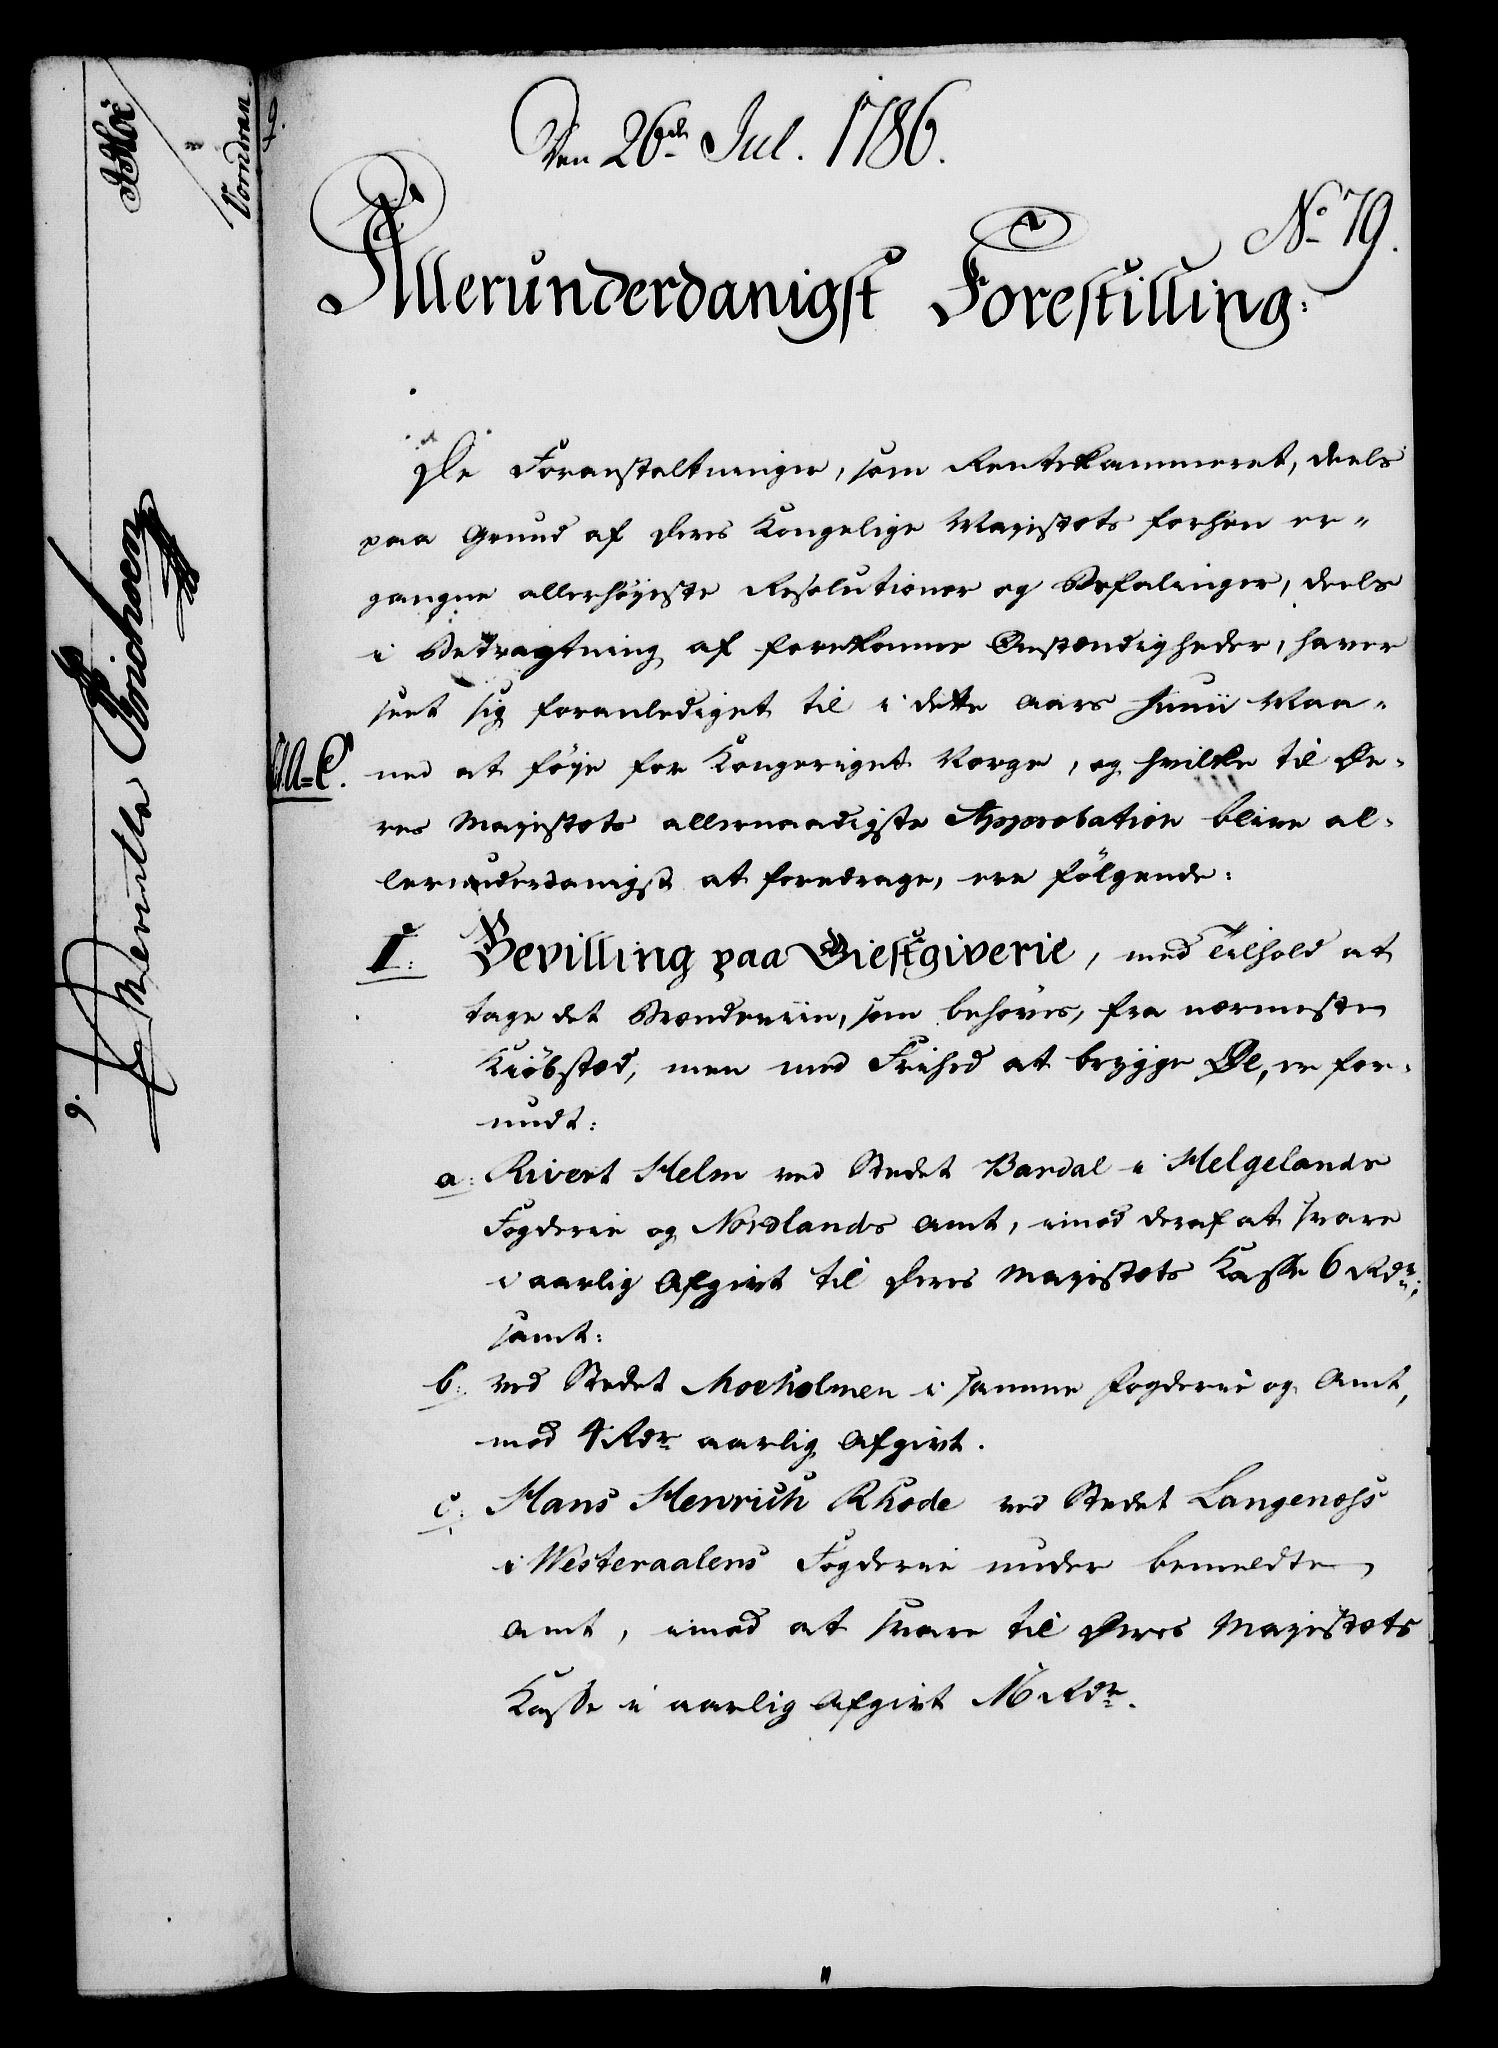 Den 26de Jul. 1786.
No 79.
Allerunderdanigst Forestilling:
De Foranstaltninger, som Rentekammeret, deels
paa Grund af Deres Kongelige Majestæts forhen er-
gangne allerhøyeste Resolutioner og Befalinger, deels
i Betragtning af forekomne Omstændigheder, haver
seet sig foranlediget til i dette Aars Junii Maa-
ned at føye for Kongeriget Norge, og hvilke til De-
res Majestæts allernaadigste Approbation blive al-
lerunderdanigst at foredrage, ere følgende:
I: Bevilling paa Giestgiverie, med Tilhold at
tage det Brændeviin, som behøves, fra nærmeste
Kiöbstæd, men med Frihed at brygge Øl, er for-
undt:
a: Rivert Helm ved Stedet Bardal i Helgelands
Fogderie og Nordlands Amt, imod deraf at svare
i aarlig Afgivt til Deres Majestæts Kasse 6 Rdr;
samt:
b: ved Stedet Moeholmen i samme Fogderie og Amt,
mod 4 Rdr aarlig Afgivt.
c: Hans Henrich Rhode ved Stedet Langenæss
i Westeraalens Fogderie under bemeldte
Amt, imod at svare til Deres Majestæts
Kasse i aarlig Afgivt 16 Rdr.
Erichsen
Vorndran